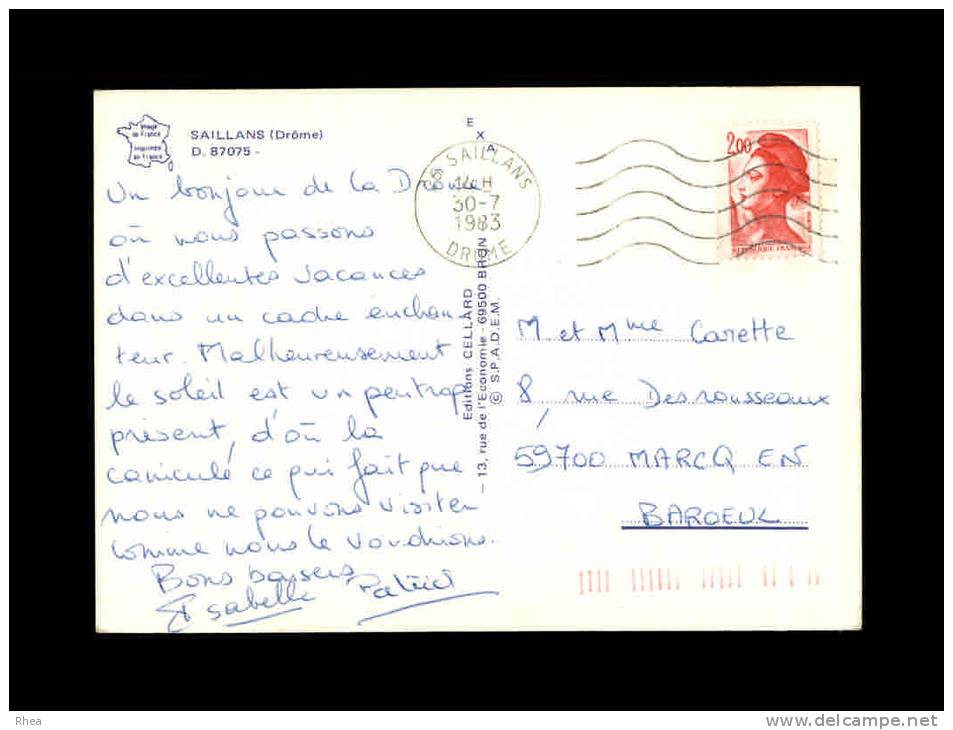 Image
de France
Imprimée
en France
SAILLANS (Drôme)
D. 87075 -
Un bonjour de la Drôme
où nous passons
d'excellentes vacances
dans un cadre enchan-
teur. Malheureusement
le soleil est un peu trop
présent, d'où la
canicule ce qui fait que
nous ne pouvons visiter
comme nous le voudrions.
Bons baisers
Isabelle Patrick
EXA
Editions CELLARD
— 13, rue de l'Economie - 69500 BRON
© S.P.A.D.E.M.
26 SAILLANS
14 H
30-7
1983
DROME
2,00
REPUBLIQUE FRANCAISE
M et Mme Carette
8, rue Desrousseaux
59700 MARCQ EN
BAROEUL
Rhea
www.delcampe.net